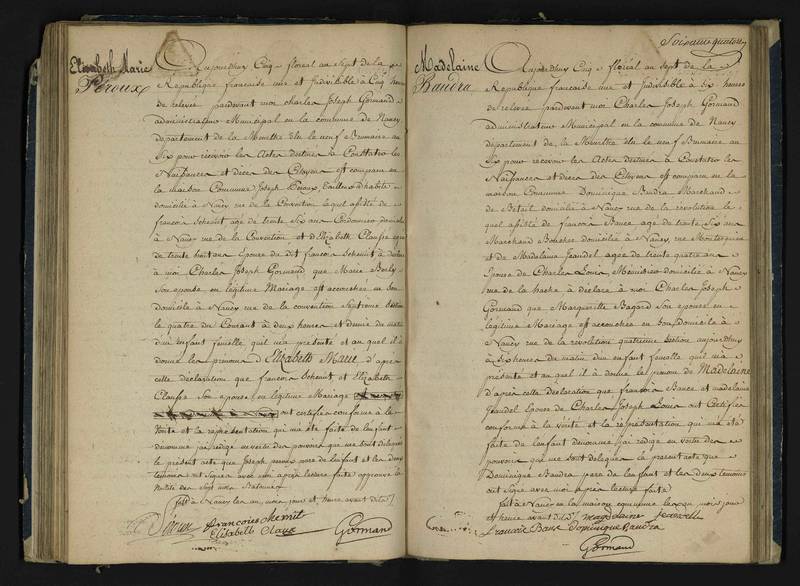 Elisabeth Marie
Peroux
Aujourdhuy Cinq floreal au Sept de la
Republique francaise une et Indivisible à Cinq heures
de relevée pardevant moi Charles Joseph Gormand
administrateur Municipal en la commune de Nancy
departement de la Meurthe élu le neuf Brumaire au
Six pour recevoir les Actes destinés à Constater les
Naissances et décès des Citoyens est comparu en
la maison Commune Joseph Peroux, Tailleur d'habits
domicilié à Nancy rue de la Convention lequel assisté de
françois Schemit agé de trente Six ans Cordonnier domicilié
à Nancy rue de la Convention et d'Elizabeth Clausse agée
de trente huit ans Epouse du dit francois Schemit à déclaré
à moi Charles Joseph Gormand que Marie
Son epouse en légitime Mariage est accouchée en son
domicile à Nancy rue de la convention Septieme Section
le quatre du Courant à deux heures et demie du matin
d'un Enfant femelle, quil m'a présenté et au quel il à
donné les prenoms d'Elizabeth Marie d'apres
cette déclaration que francois Schemit et Elizabeth
Clausse son epouse en légitime Mariage
ont certifiée conforme à la
Vérité et la représentation qui m'a été faite de l'enfant
denommé jai redigé en vertu des pouvoirs qui me sont delegués
le présent acte que Joseph peroux pere de l'enfant et les deux
temoins ont Signés avec moi après lecture faite approuvé la
nullité des Sept mots Batonnés
fait à Nancy les an, mois jour et heure avant dits
Peroux francoies chemit
Elisabeth Claux Gormand
Soixante quatorze
Madelaine
Baudra
Aujourdhuy Cinq floreal au Sept de la
Republique francaise une et Indivisible à Six heures
de relevée pardevant moi Charles Joseph Gormand
administrateur Municipal en la commune de Nancy
departement de la Meurthe élu le neuf Brumaire au
Six pour recevoir les Actes destinés à Constater les
Naissances et décès des Citoyens est comparu en la
maison Commune Dominique Baudra Marchand
de Betail domicilié à Nancy rue de la révolution le
quel assisté de francois Bance agé de trente Six ans
Marchand Boucher domicilié à Nancy, rue Montesquieu
et de Madelaine Jeandel agée de trente quatre ans
Epouse de Charles Louis, Menuisier domicilié à Nancy
rue de la hache à déclaré à moi Charles Joseph
Gormand que Margueritte Bagard son epouse en
légitime Mariage est accouchée en son Domicile à
Nancy rue de la révolution quatrieme Section aujourdhuy
à Six heures du matin d'un enfant femelle quil m'a
présenté et au quel il à donné le prenom de Madelaine
d'après cette déclaration que francois Bance et madelaine
Jeandel Epouse de Charles Joseph Louis ont Certifiée
conforme à la Vérité et la représentation qui m'a été
faite de l'enfant denommé jai redigé en vertu des
pouvoirs qui me sont delegués le present acte que
Dominique Baudra pere de l'enfant et les deux temoins
ont Signé avec moi après lecture faite
fait à Nancy en la maison commune les an mois jour
et heure avant dits magdelaine jeandell
francois Bans dominique Baudra
Gormand